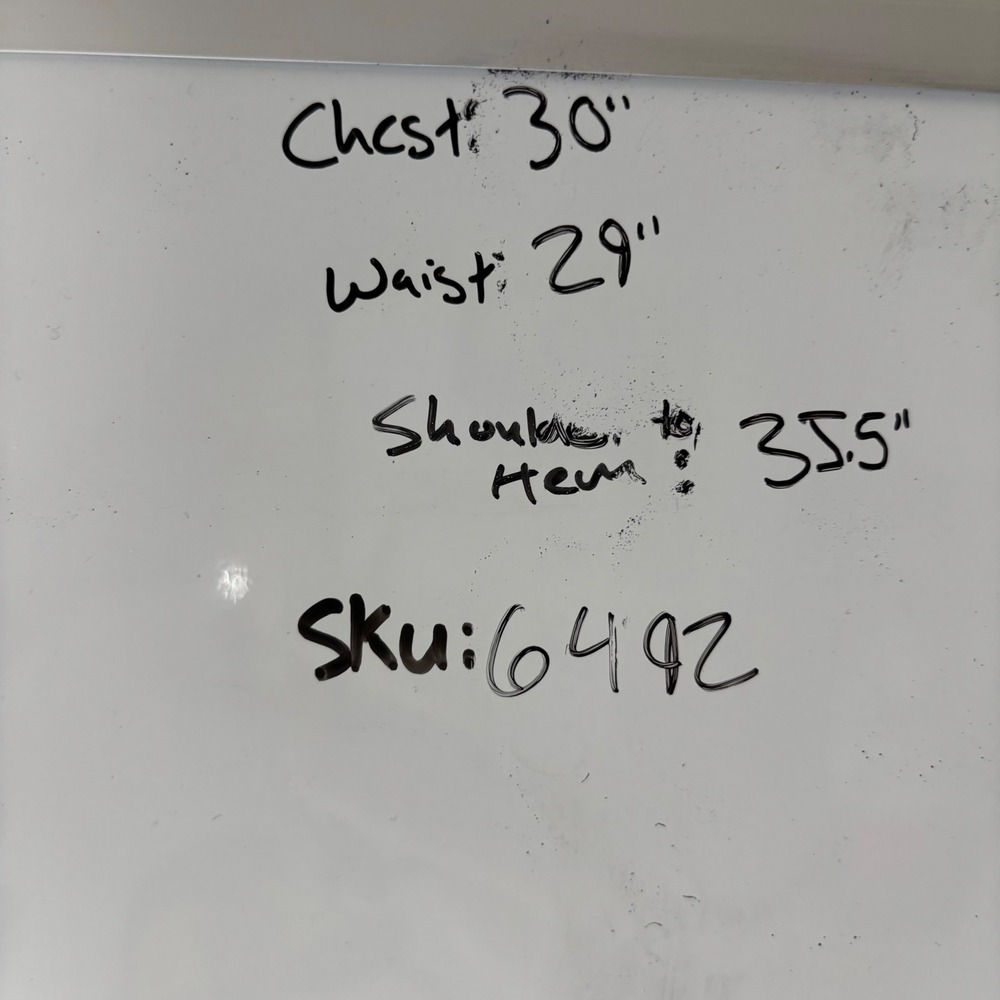 Chest: 30"
Waist: 29"
Shoulder to
Hem : 35.5"
SKU: 6492